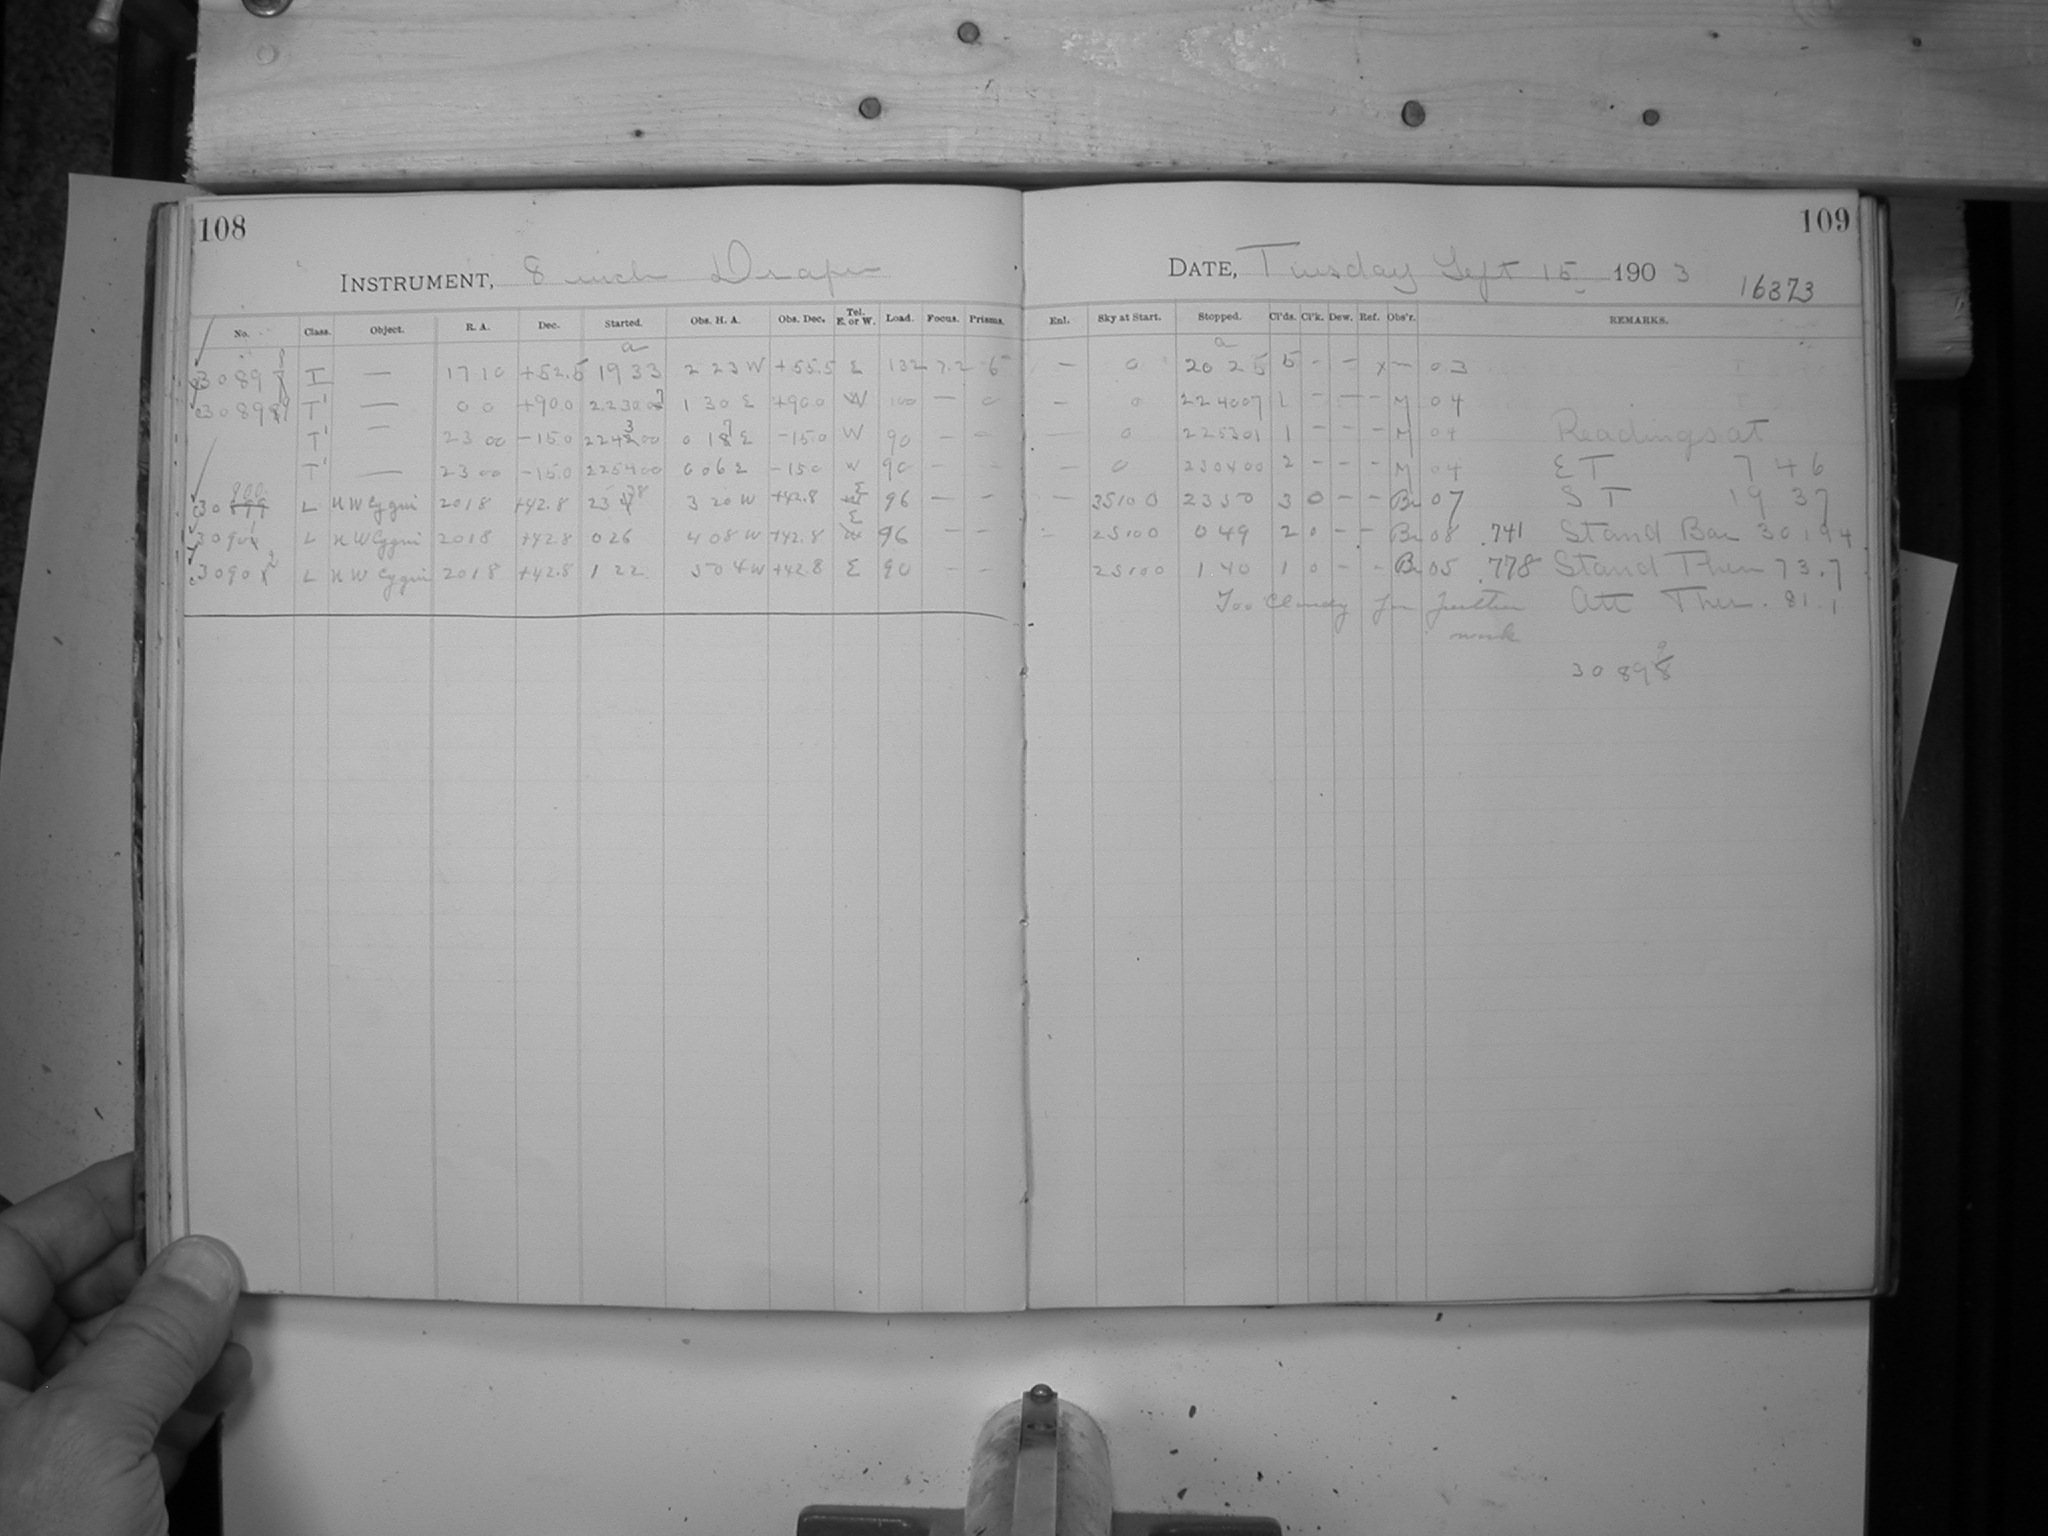 108
109
INSTRUMENT, 8 inch Draper
DATE, Tuesday Sept 15 1903 16373
No. Class. Object. R. A. Dec. Started. Obs. H. A. Obs. Dec. Tel. E. or W. Load. Focus. Prisms. Enl. Sky at Start. Stopped. Cl'ds. Cl'k. Dew. Ref. Obs'r. REMARKS.
a a
I — 17 10 +52.5 19 33 2 23 W +55.5 E 132 7.2 — 0 20 25 5 - - x — 03
T' — 0 0 +90.0 1 30 E +90.0 W 100 — 0 — 0 224007 1 - - - M 04
T' — 23 00 -15.0 E -15.0 W 90 - — 0 225301 1 - - - M 04 Readings at
T' — 23 00 -15.0 225400 0 06 E -15.0 W 90 - - — 0 230400 2 - - - M 04 E T 7 46
L 2018 +42.8 3 20 W +42.8 E 96 — - — 35100 2350 3 0 - - Br 07 S T 19 37
L 2018 +42.8 0 26 4 08 W +42.8 E 96 - - 25100 0 49 2 0 - - Br 08 .741 Stand Bar 30.194
L 2018 +42.8 1 22 5 04 W +42.8 E 90 - - 25100 1 40 1 0 - - Br 05 .778 Stand Ther 73.7
Too Cloudy for further Att Ther. 81.1
work
3089